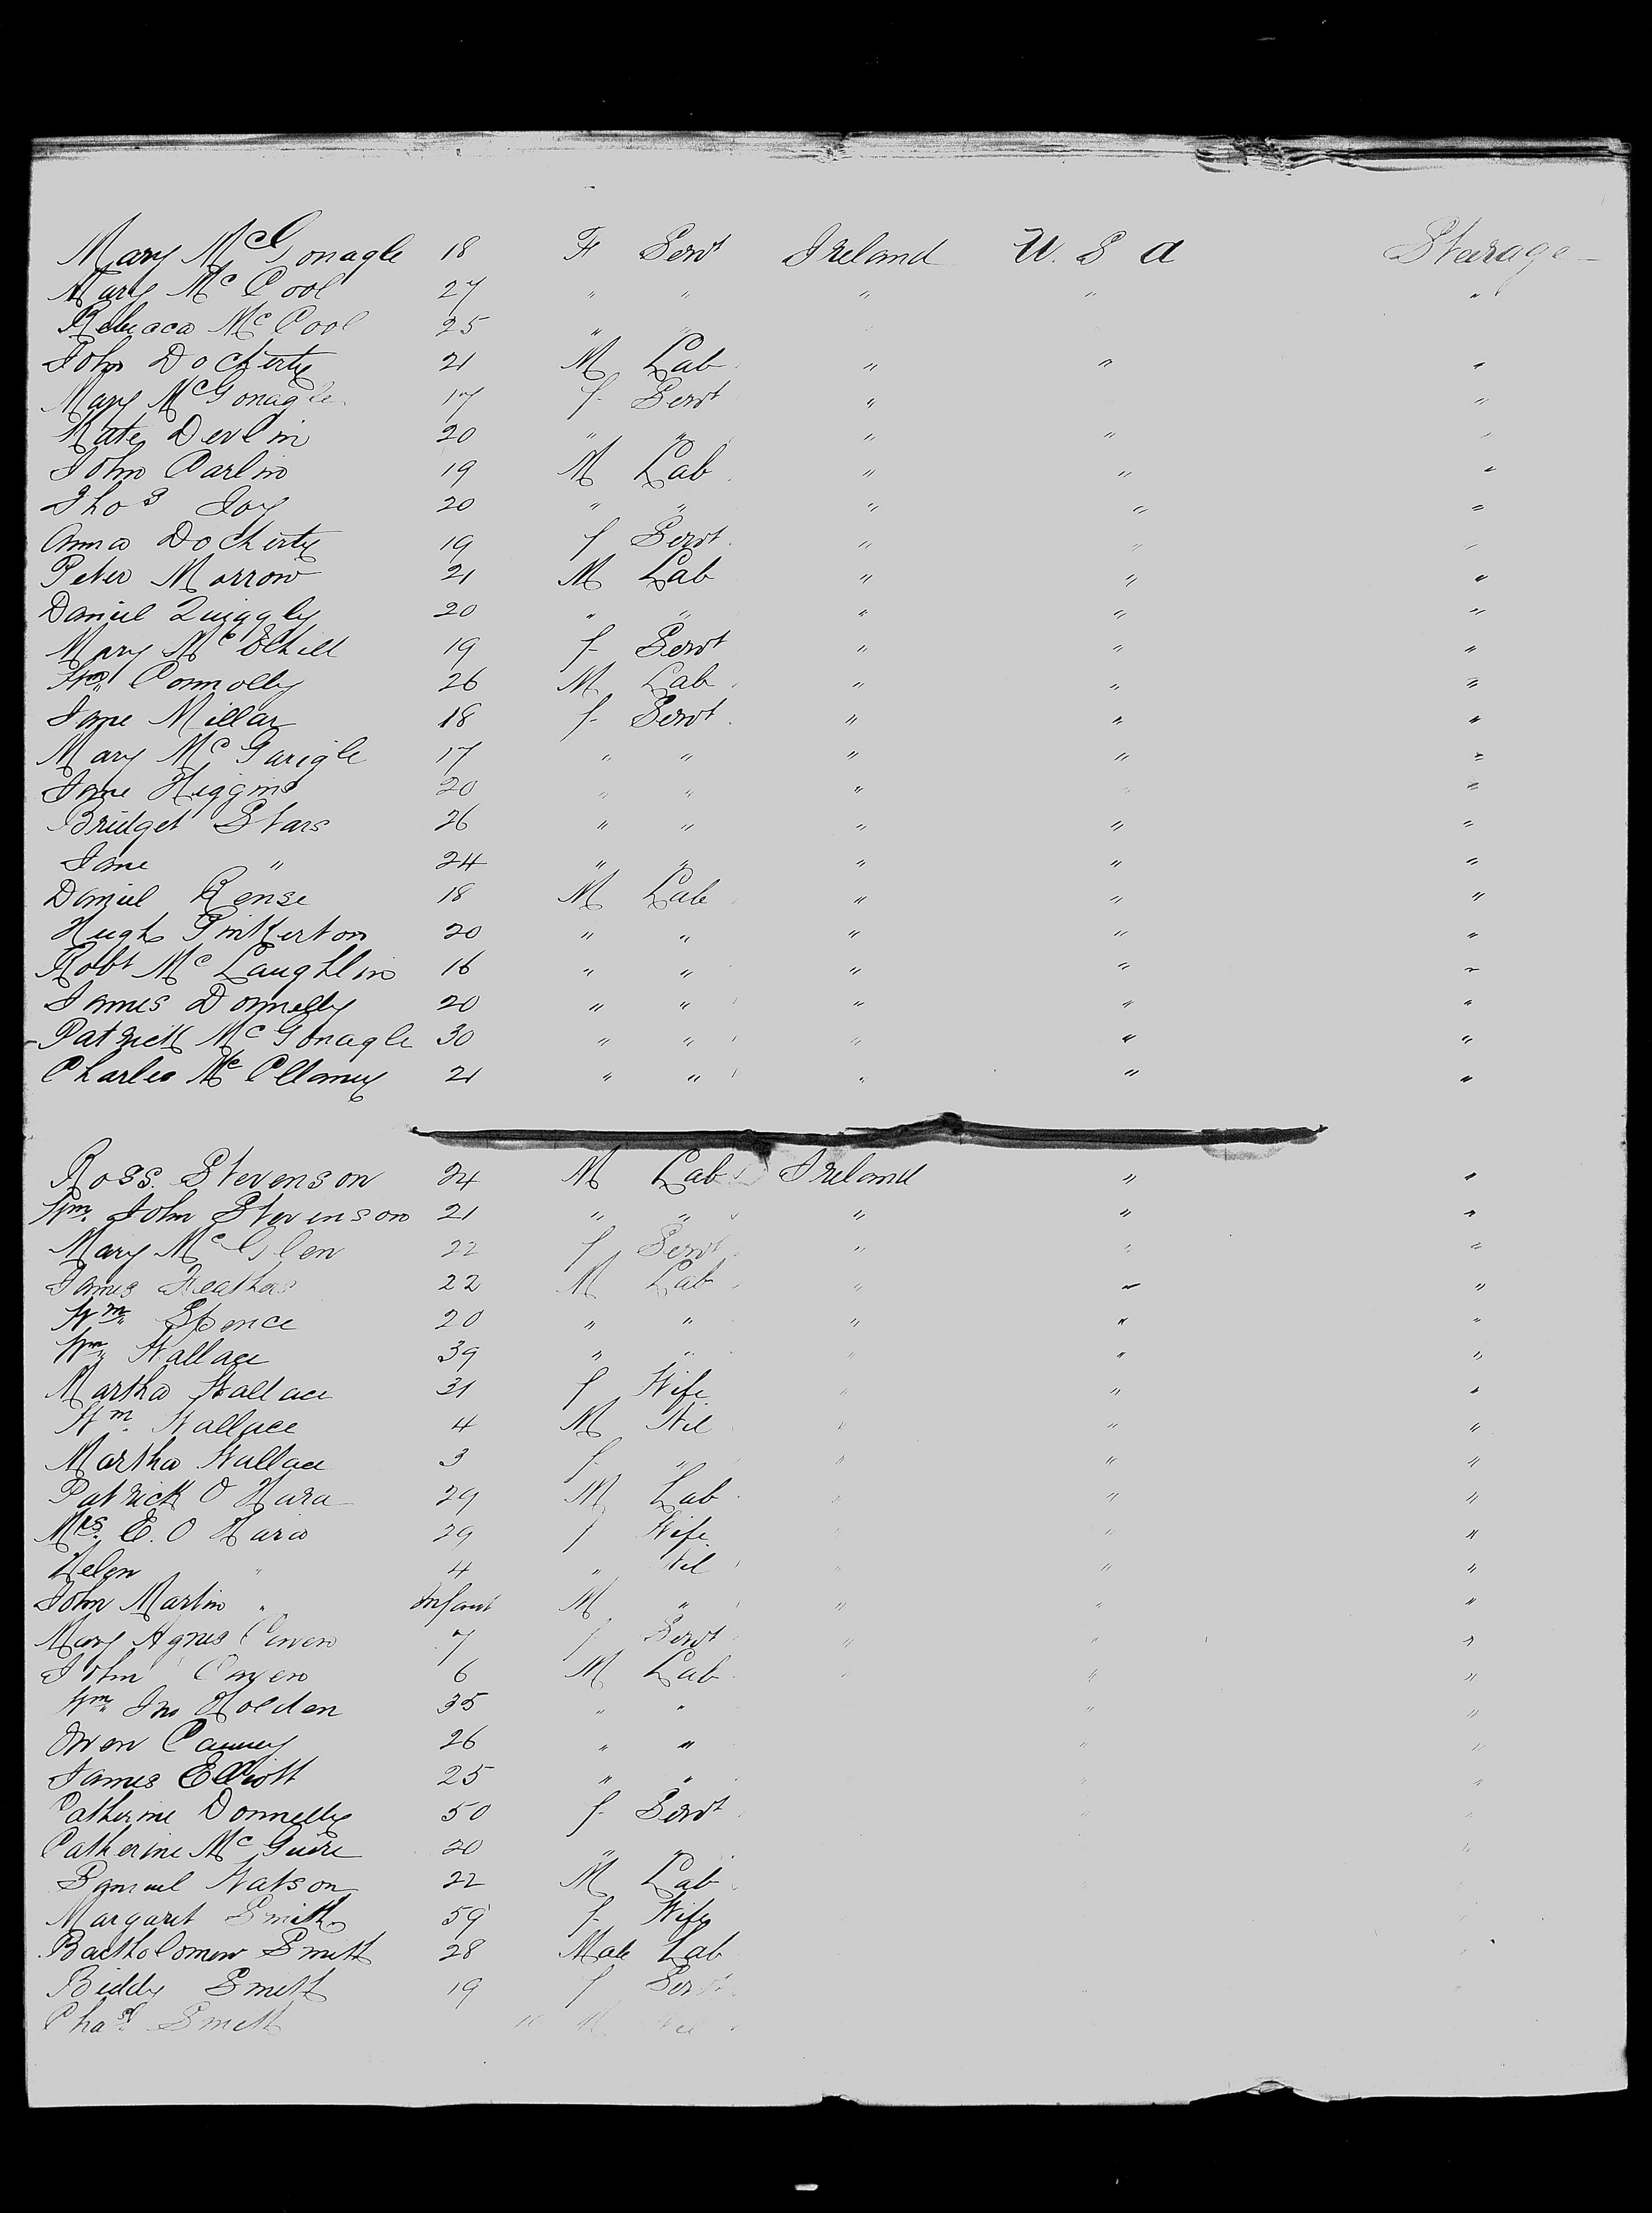 Mary McGonagle 18 F Servt Ireland U. S A Stearage
Mary McCool 27 " " " " "
Rebecca McCool 25 " "
John Docherty 21 M Lab " " "
Mary McGonagle 17 f Servt " "
Kate Devlin 20 " " " " "
John Carlin 19 M Lab " " "
Thos Joy 20 " " " " "
Anna Docherty 19 f Servt " " "
Peter Morrow 21 M Lab " " "
Daniel Quiggly 20 " " " " "
Mary Mc 19 f Servt " " "
Connolly 26 M Lab " " "
Jane Millar 18 f Servt " " "
Mary McGarigle 17 " " " " "
Jane Higgins 20 " " " " "
Bridget Stars 26 " " " " "
Jane " 24 " " " " "
Daniel 18 M Lab " " "
Hugh Pinkerton 20 " " " " "
Robt McLaughlin 16 " " " " "
James Donnelly 20 " " " " "
Patrick McGonagle 30 " " " " "
Charles Mc 21 " " " " "
Ross Stevenson 24 M Lab Ireland " "
Wm. John Stevenson 21 " " " " "
Mary McGlen 22 f Servt " " "
James 22 M Lab " " "
Wm Spence 20 " " " " "
Wm Wallace 39 " " " " "
Martha Wallace 31 f Wife " " "
Wm. Wallace 4 M Nil " " "
Martha Wallace 3 f " " " "
Patrick O Hara 29 M Lab " " "
Mrs. E. O Hara 29 f Wife " " "
Helen " 4 " Nil " " "
John Martin " Infant M " " " "
Mary Agnes 7 f Servt " " "
John 6 M Lab " "
Wm Jno Holden 35 " " " "
Owen Canney 26 " " " "
James Elliott 25 " " " "
Catherine Donnelly 50 f Servt " "
Catherine McGuire 20 " " "
Samuel Watson 22 M Lab
Margaret Smith 59 f Wife
Bartholomew Smith 28 Male Lab
Biddy Smith 19 f Servt
Chas Smith 10 M Nil